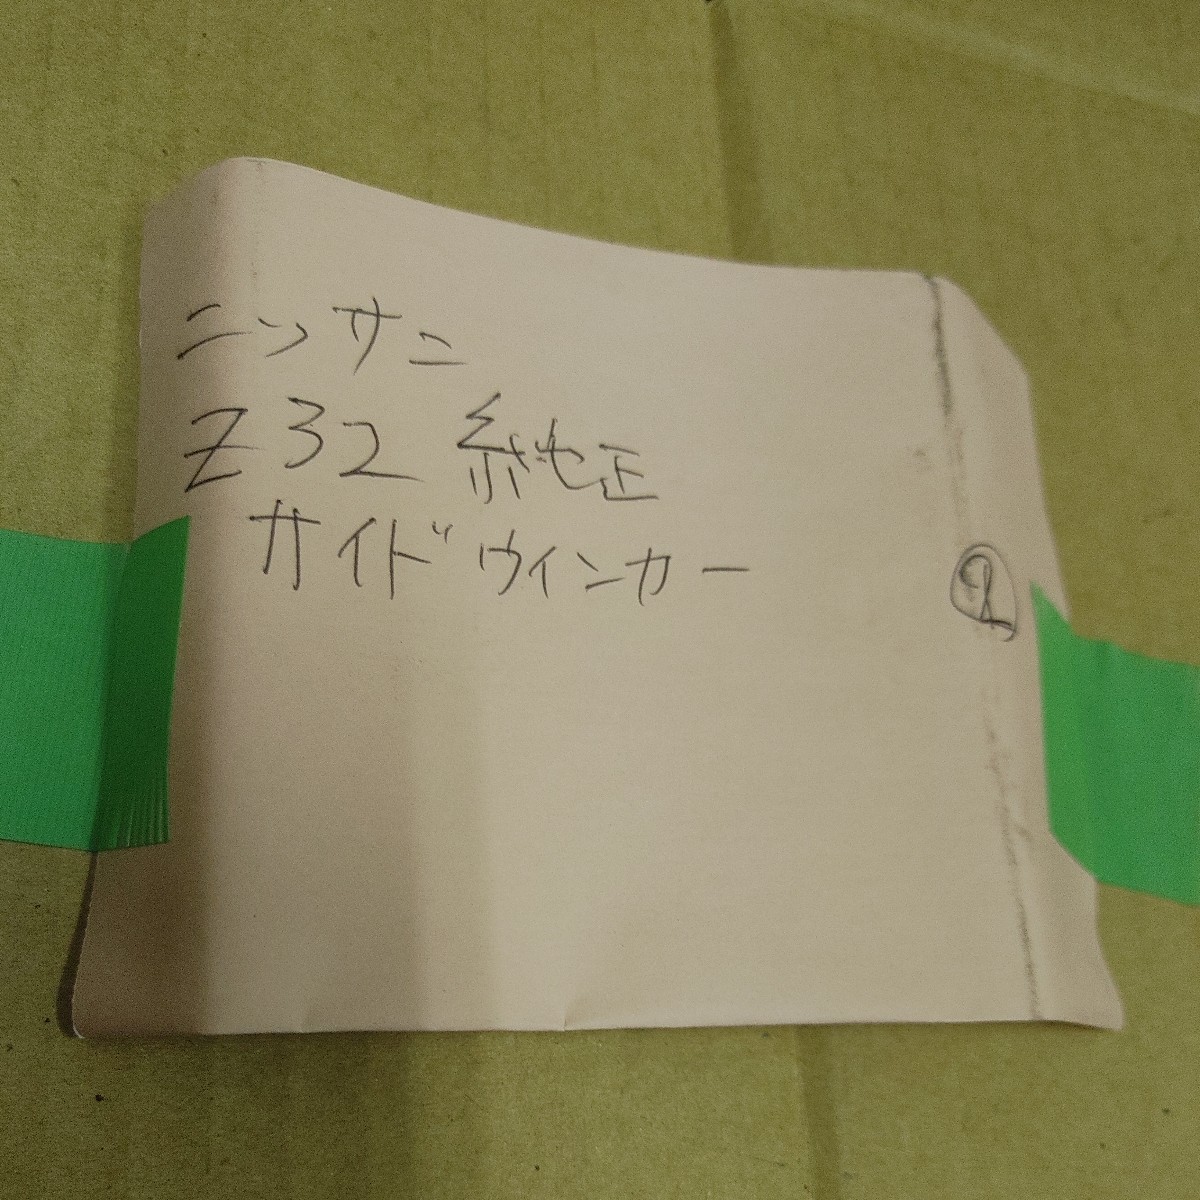 ニッサン
Z32 純正
サイドウィンカー
②